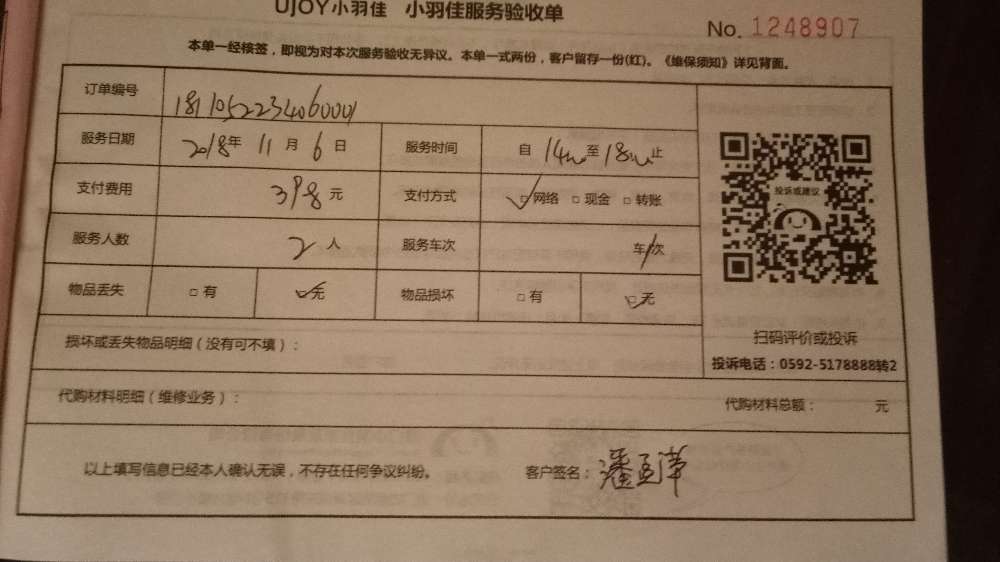 UJOY小羽佳 小羽佳服务验收单
No. 1248907
本单一经核签，即视为对本次服务验收无异议。本单一式两份，客户留存一份(红)。《维保须知》详见背面。
订单编号
服务日期 2018年 11月 6日 服务时间 自 14 至 18 止
支付费用 398元 支付方式 ☑网络 □现金 □转账
服务人数 2人 服务车次 车/次
物品丢失 □有 ☑无 物品损坏 □有 ☑无
投诉或建议
扫码评价或投诉
投诉电话：0592-5178888转2
损坏或丢失物品明细（没有可不填）：
代购材料明细（维修业务）： 代购材料总额： 元
以上填写信息已经本人确认无误，不存在任何争议纠纷。 客户签名： 潘